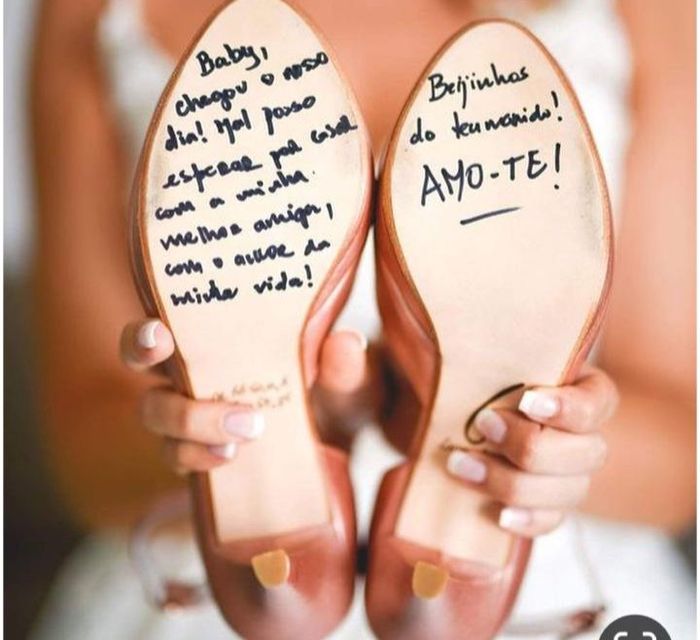 Baby,
chegou o nosso
dia! Mal posso
esperar por casar
com a minha
melhor amiga,
com o amor da
minha vida!
Beijinhos
do teu marido!
AMO-TE!